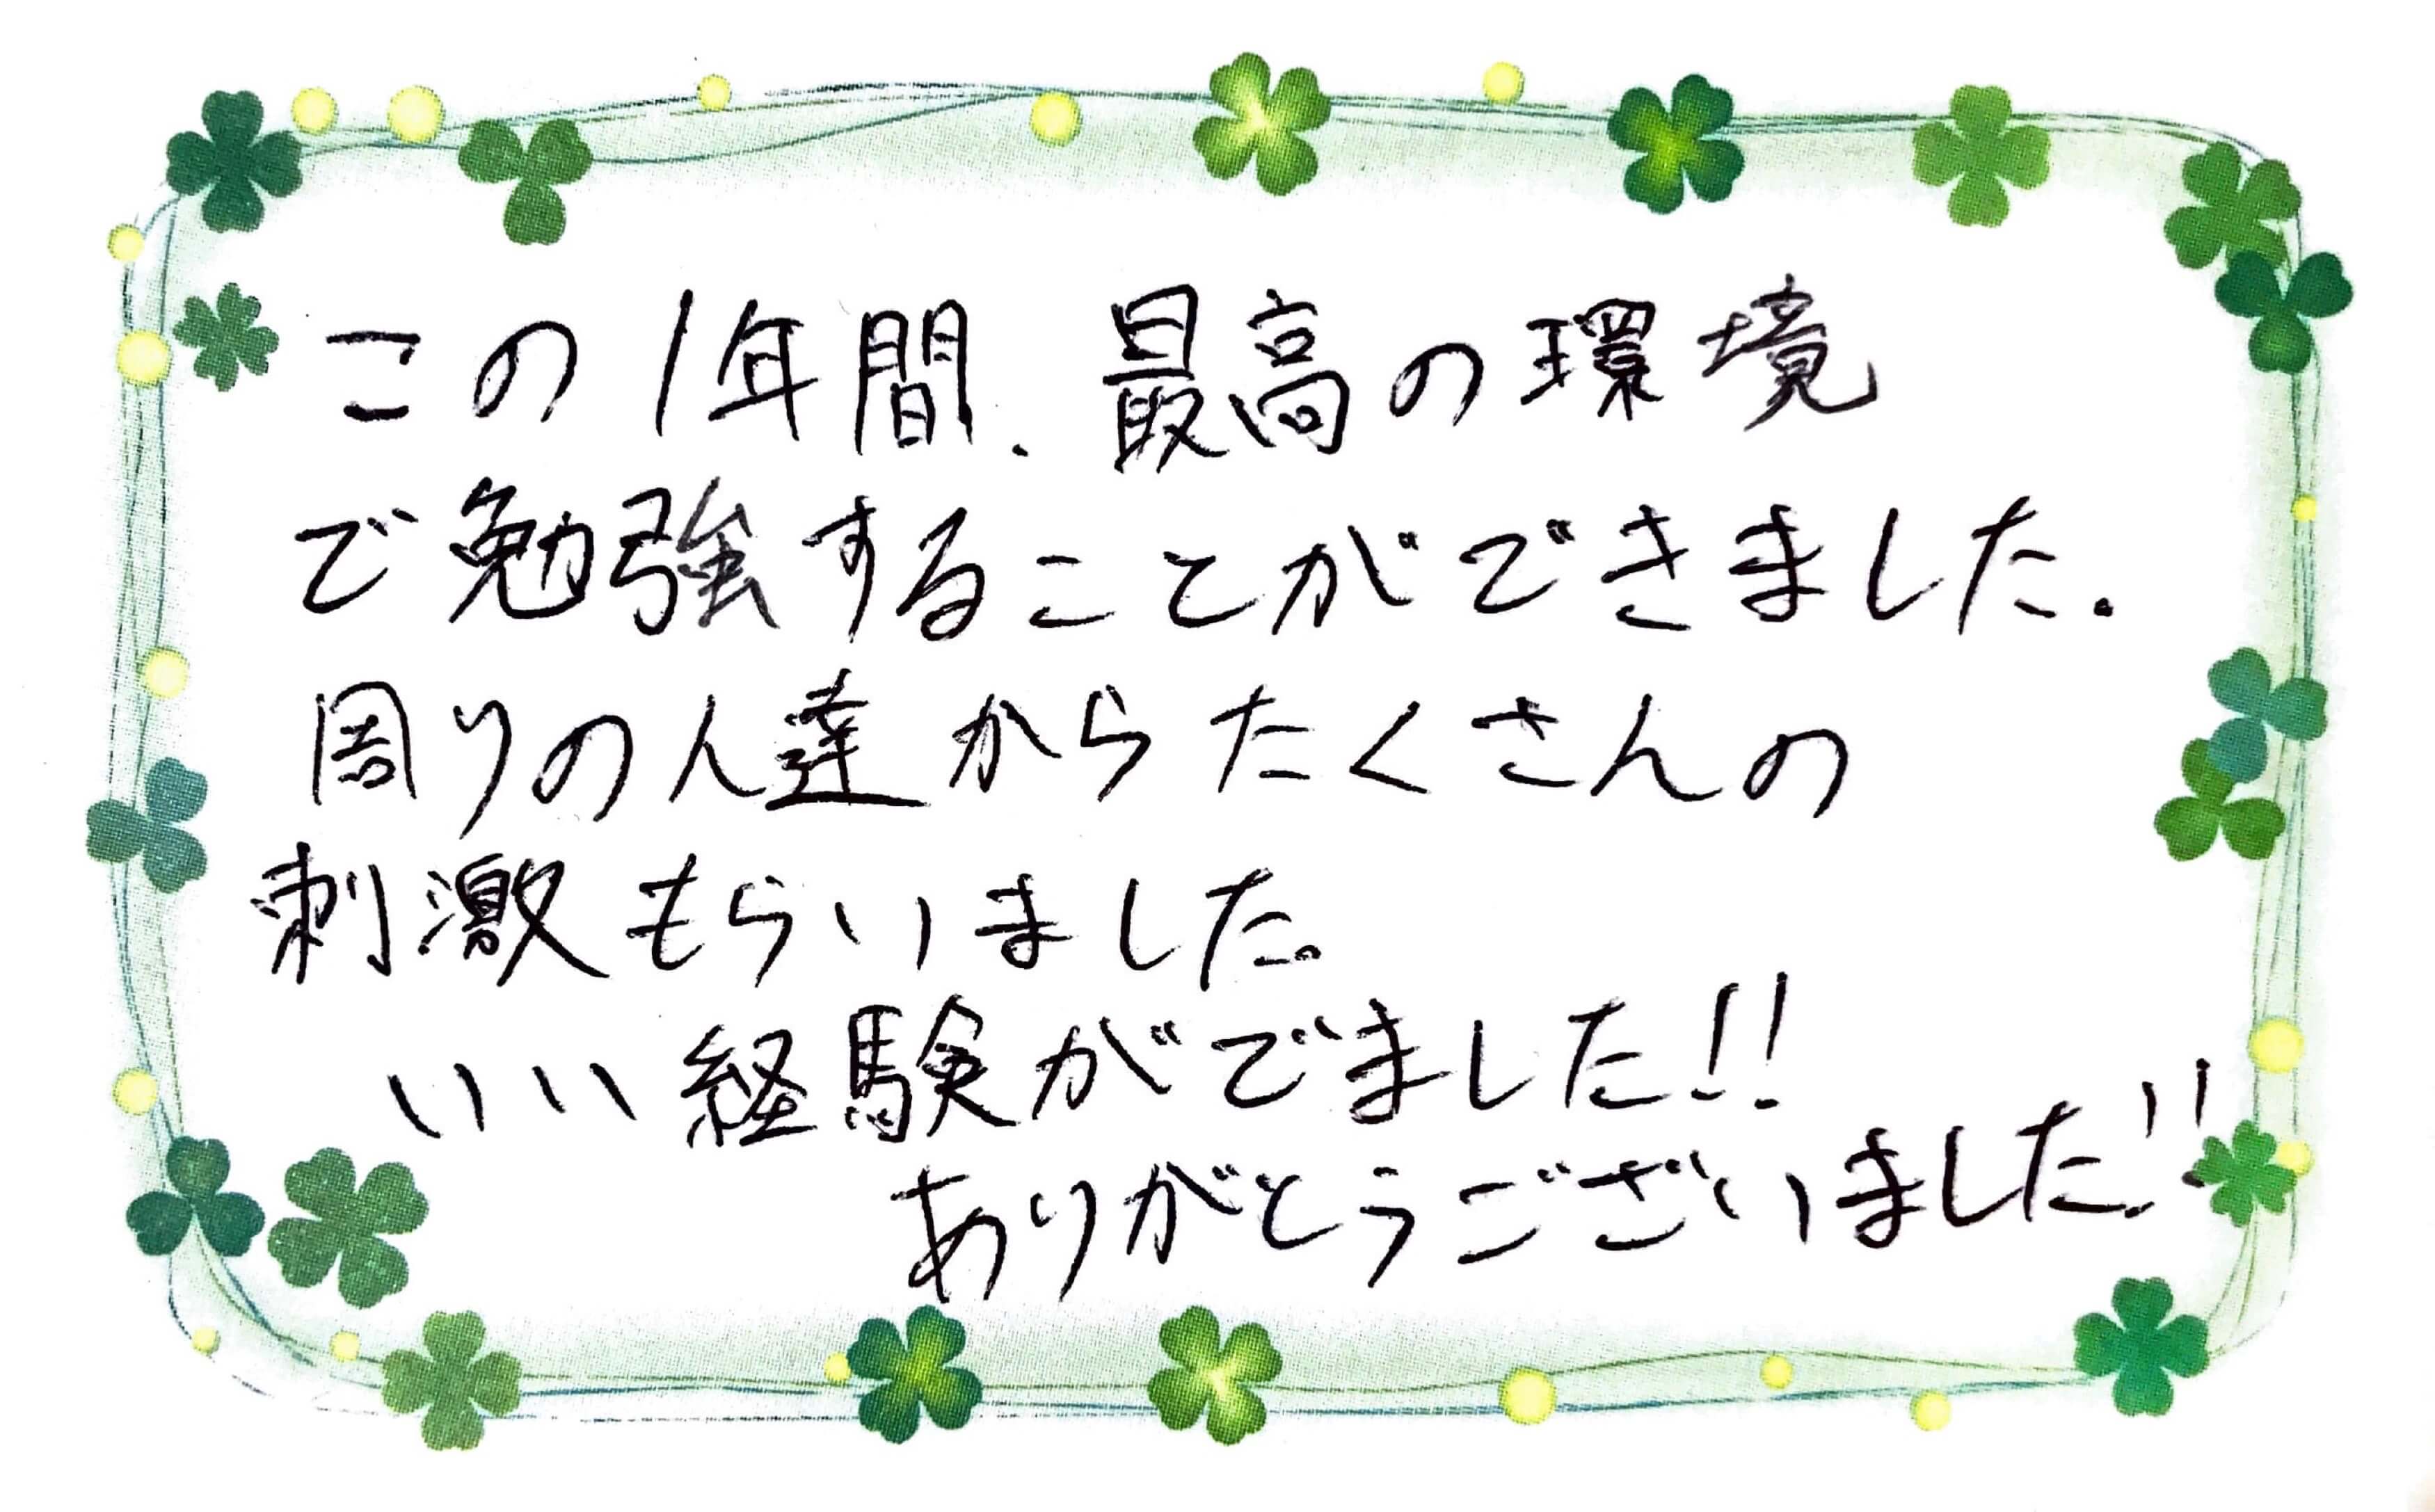 この1年間、最高の環境
で勉強することができました。
周りの人達からたくさんの
刺激もらいました。
いい経験がでました!!
ありがとうございました!!